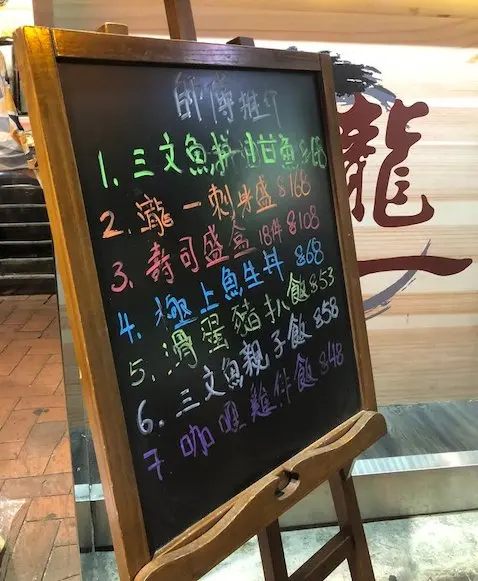 師傅推介
1. 三文魚拼油甘魚 $168
2. 瀧一刺身盛 $168
3. 壽司盛盒 18件 $108
4. 極上魚生丼 $68
5. 滑蛋豬扒飯 $53
6. 三文魚親子飯 $58
7 咖喱雞伴飯 $48
瀧
一